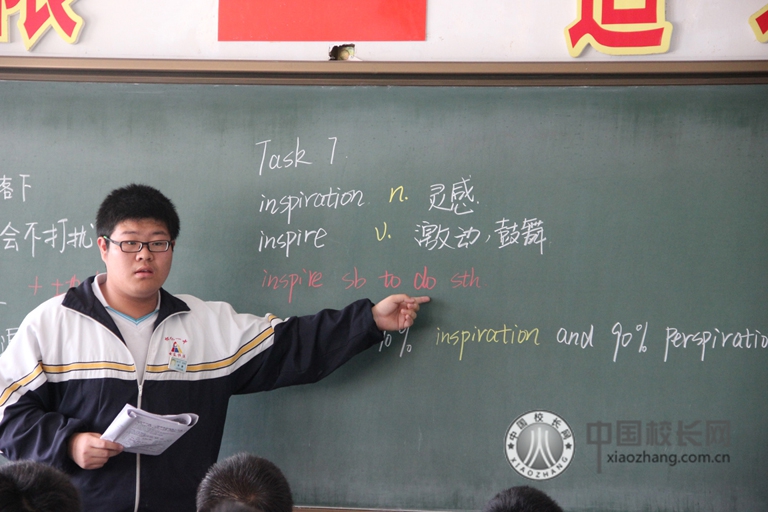 Task 7
落下
inspiration n. 灵感.
会不打扰
inspire v. 激动,鼓舞
inspire sb to do sth
0% inspiration and 90% perspiratio
中国校长网
中国校长网
xiaozhang.com.cn
XIAOZHANG.COM